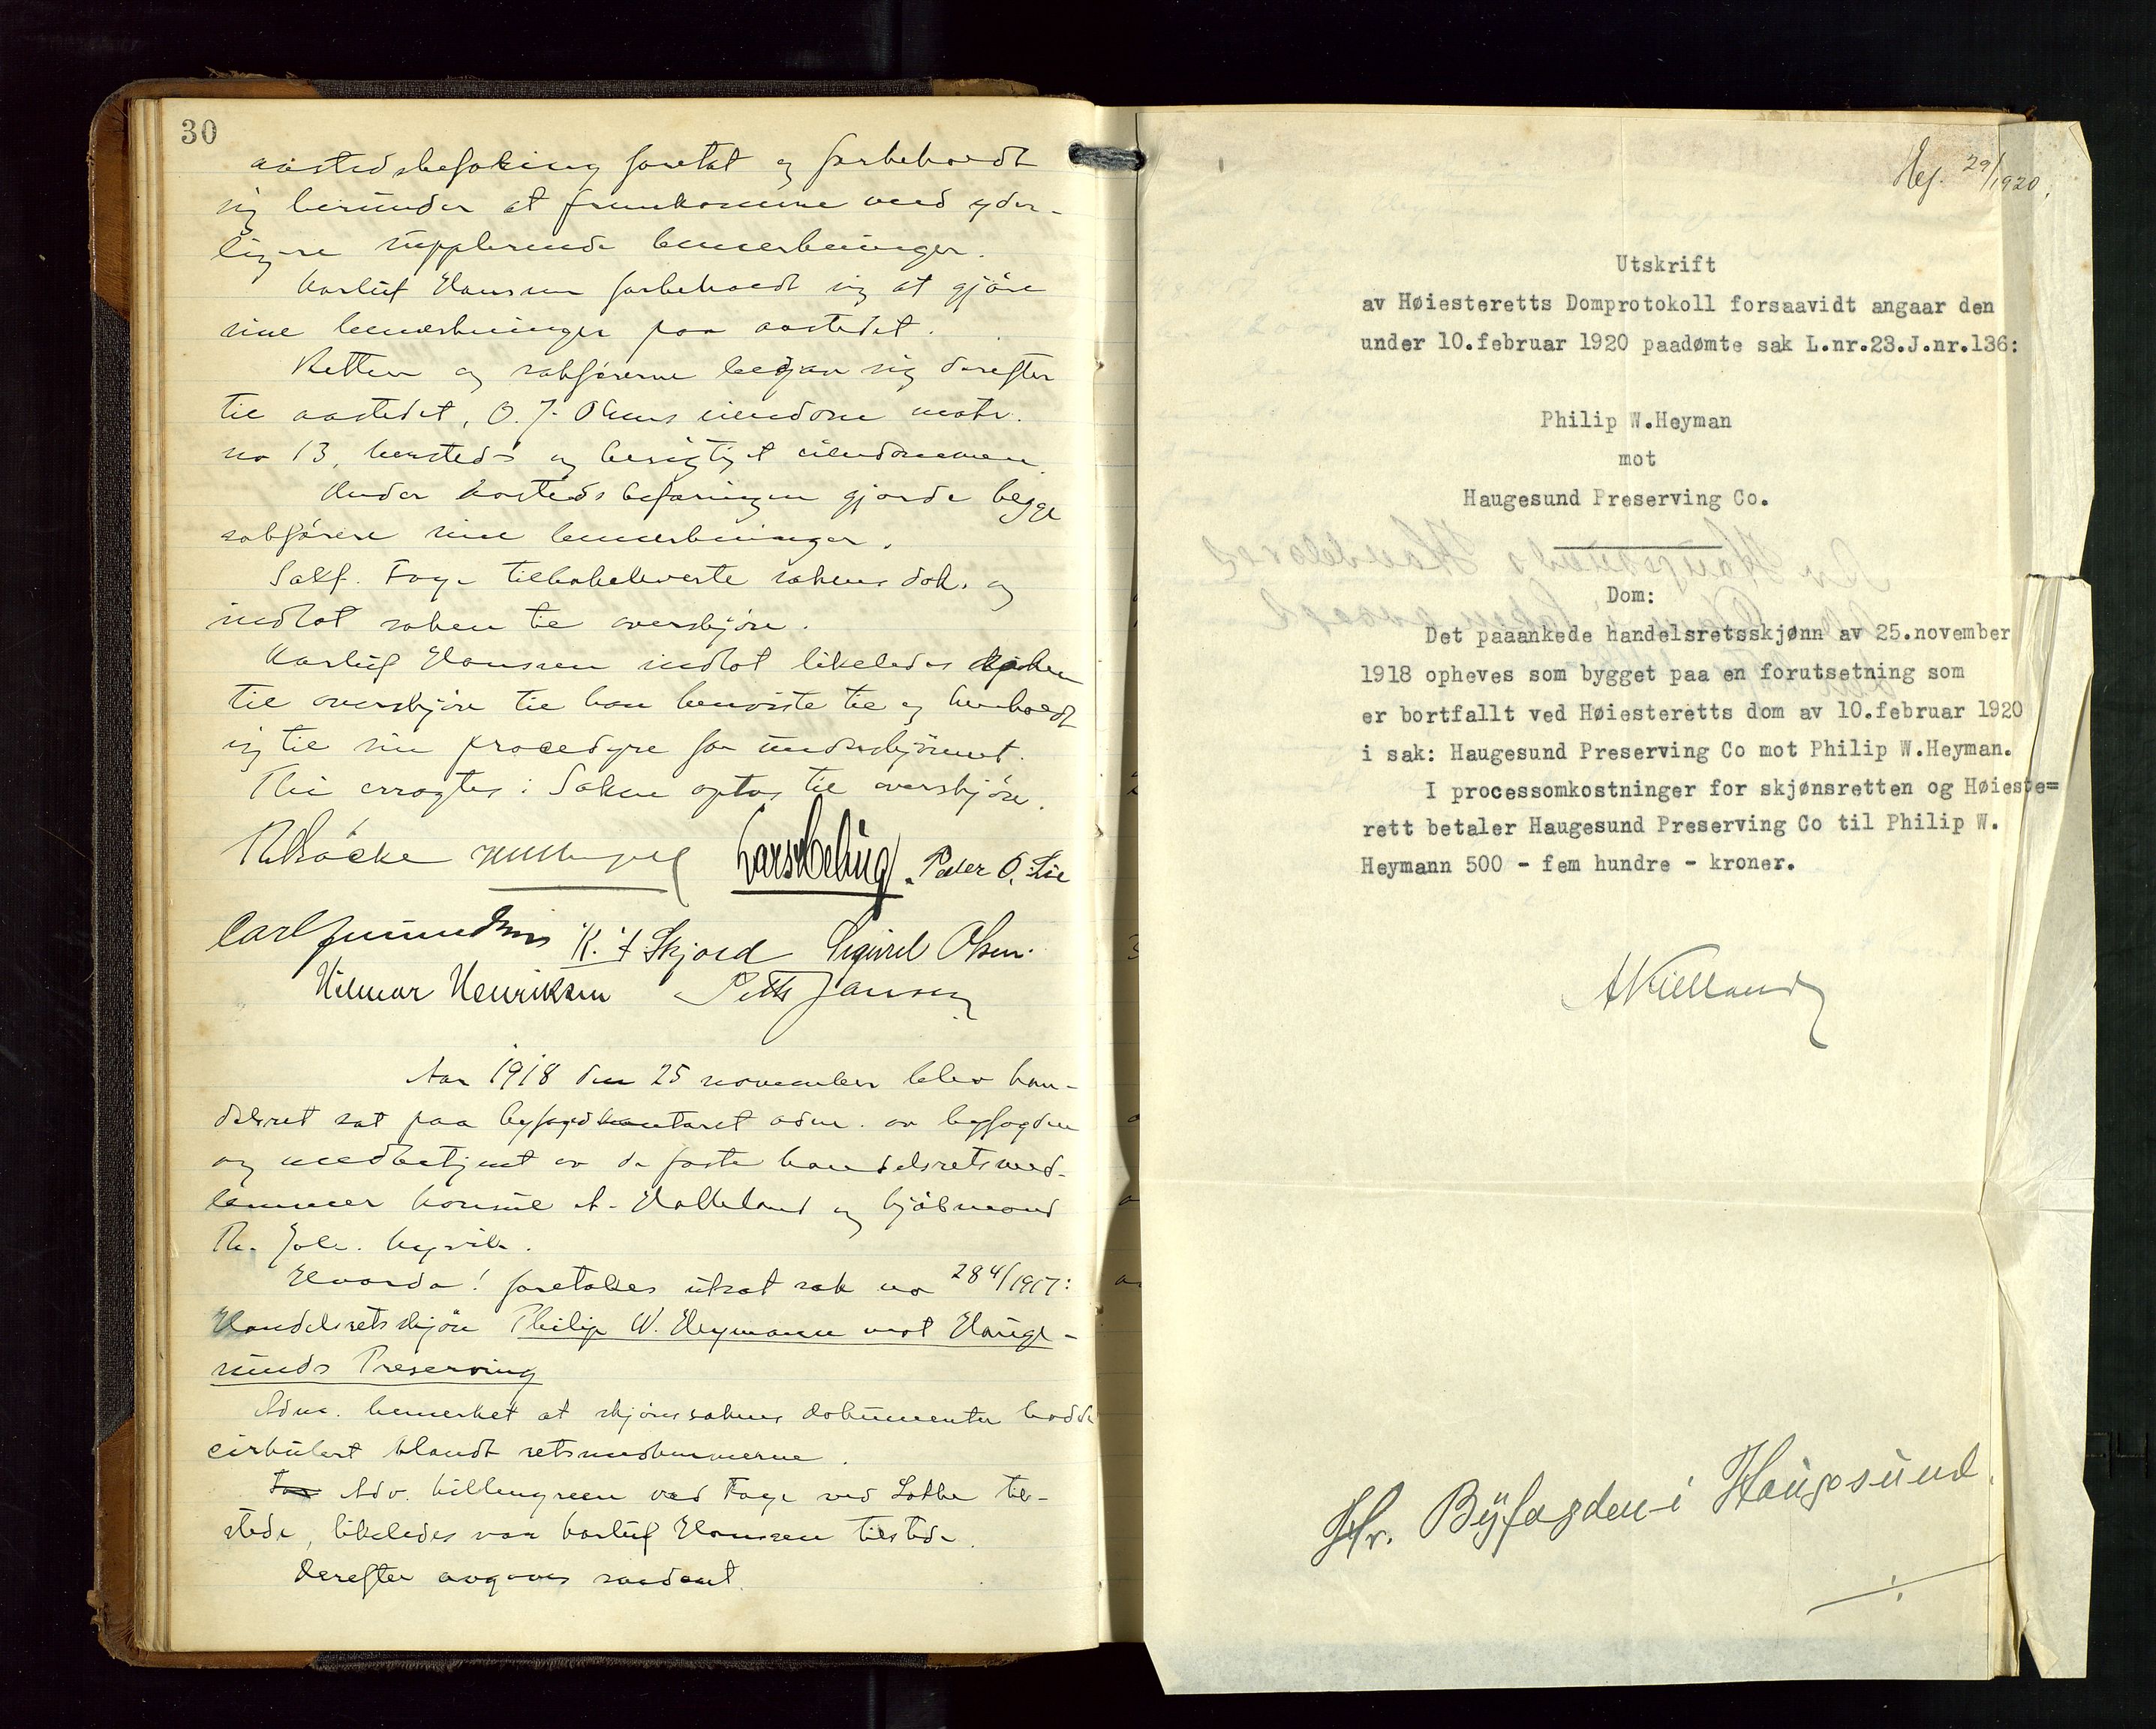 30
aastedsbefaring foretat og forbeholdt
sig herunder at fremkomme med yder-
ligere supplerende bemerkninger.
Karluf Hanssen forbeholdt sig at gjöre
sine bemerkninger paa aastedet.
Retten og sakførerne begav sig derefter
til aastedet, O. J. Olsens eiendom matr.
no 13, hersteds og besigtiget eiendommen.
Under aastedsbefaringen gjorde begge
sakførere sine bemerkninger.
Sakf. Fage tilbakeleverte sakens dok. og
indlot saken til overskjön.
Karluf Hanssen indlot likeledes saken
til overskjön til han henviste til og henholdt
sig til sin procedyre for underskjönnet.
Thi eragtes: Saken optas til overskjön.
Lars Meling. Peder O. Lie
Carl Gumundsen K. Skjold Sigurd Olsen.
Hilmar Henriksen Jansen
Aar 1918 den 25 november blev han-
delsret sat paa byfogdkontoret adm. av byfogden
og medbetjent av de faste handelsretsmed-
lemmer konsul A. Halleland og kjöbmand
Th. Joh.
Hvorda! foretokes utsat sak no 284/1917:
Handelsretsskjön Philip W. Heymann mot Hauge-
sunds Preserving
Adm. bemerket at skjönssakens dokumenter hadde
cirkulert blandt retsmedlemmerne.
Adv. Killengreen ved Fage ved Lothe til-
stede, likeledes var Karluf Hanssen tilstede.
Derefter avgaves saadant
Hej. 29/1920.
Utskrift
av Høiesteretts Domprotokoll forsaavidt angaar den
under 10.februar 1920 paadømte sak L.nr.23.J.nr.136:
Philip W.Heyman
mot
Haugesund Preserving Co.
Dom:
Det paaankede handelsretsskjønn av 25.november
1918 opheves som bygget paa en forutsetning som
er bortfallt ved Høiesteretts dom av 10.februar 1920
i sak: Haugesund Preserving Co mot Philip W.Heyman.
I processomkostninger for skjønsretten og Høieste=
rett betaler Haugesund Preserving Co til Philip W.
Heymann 500 - fem hundre - kroner.
AKielland
Hr. Byfogden i Haugesund.